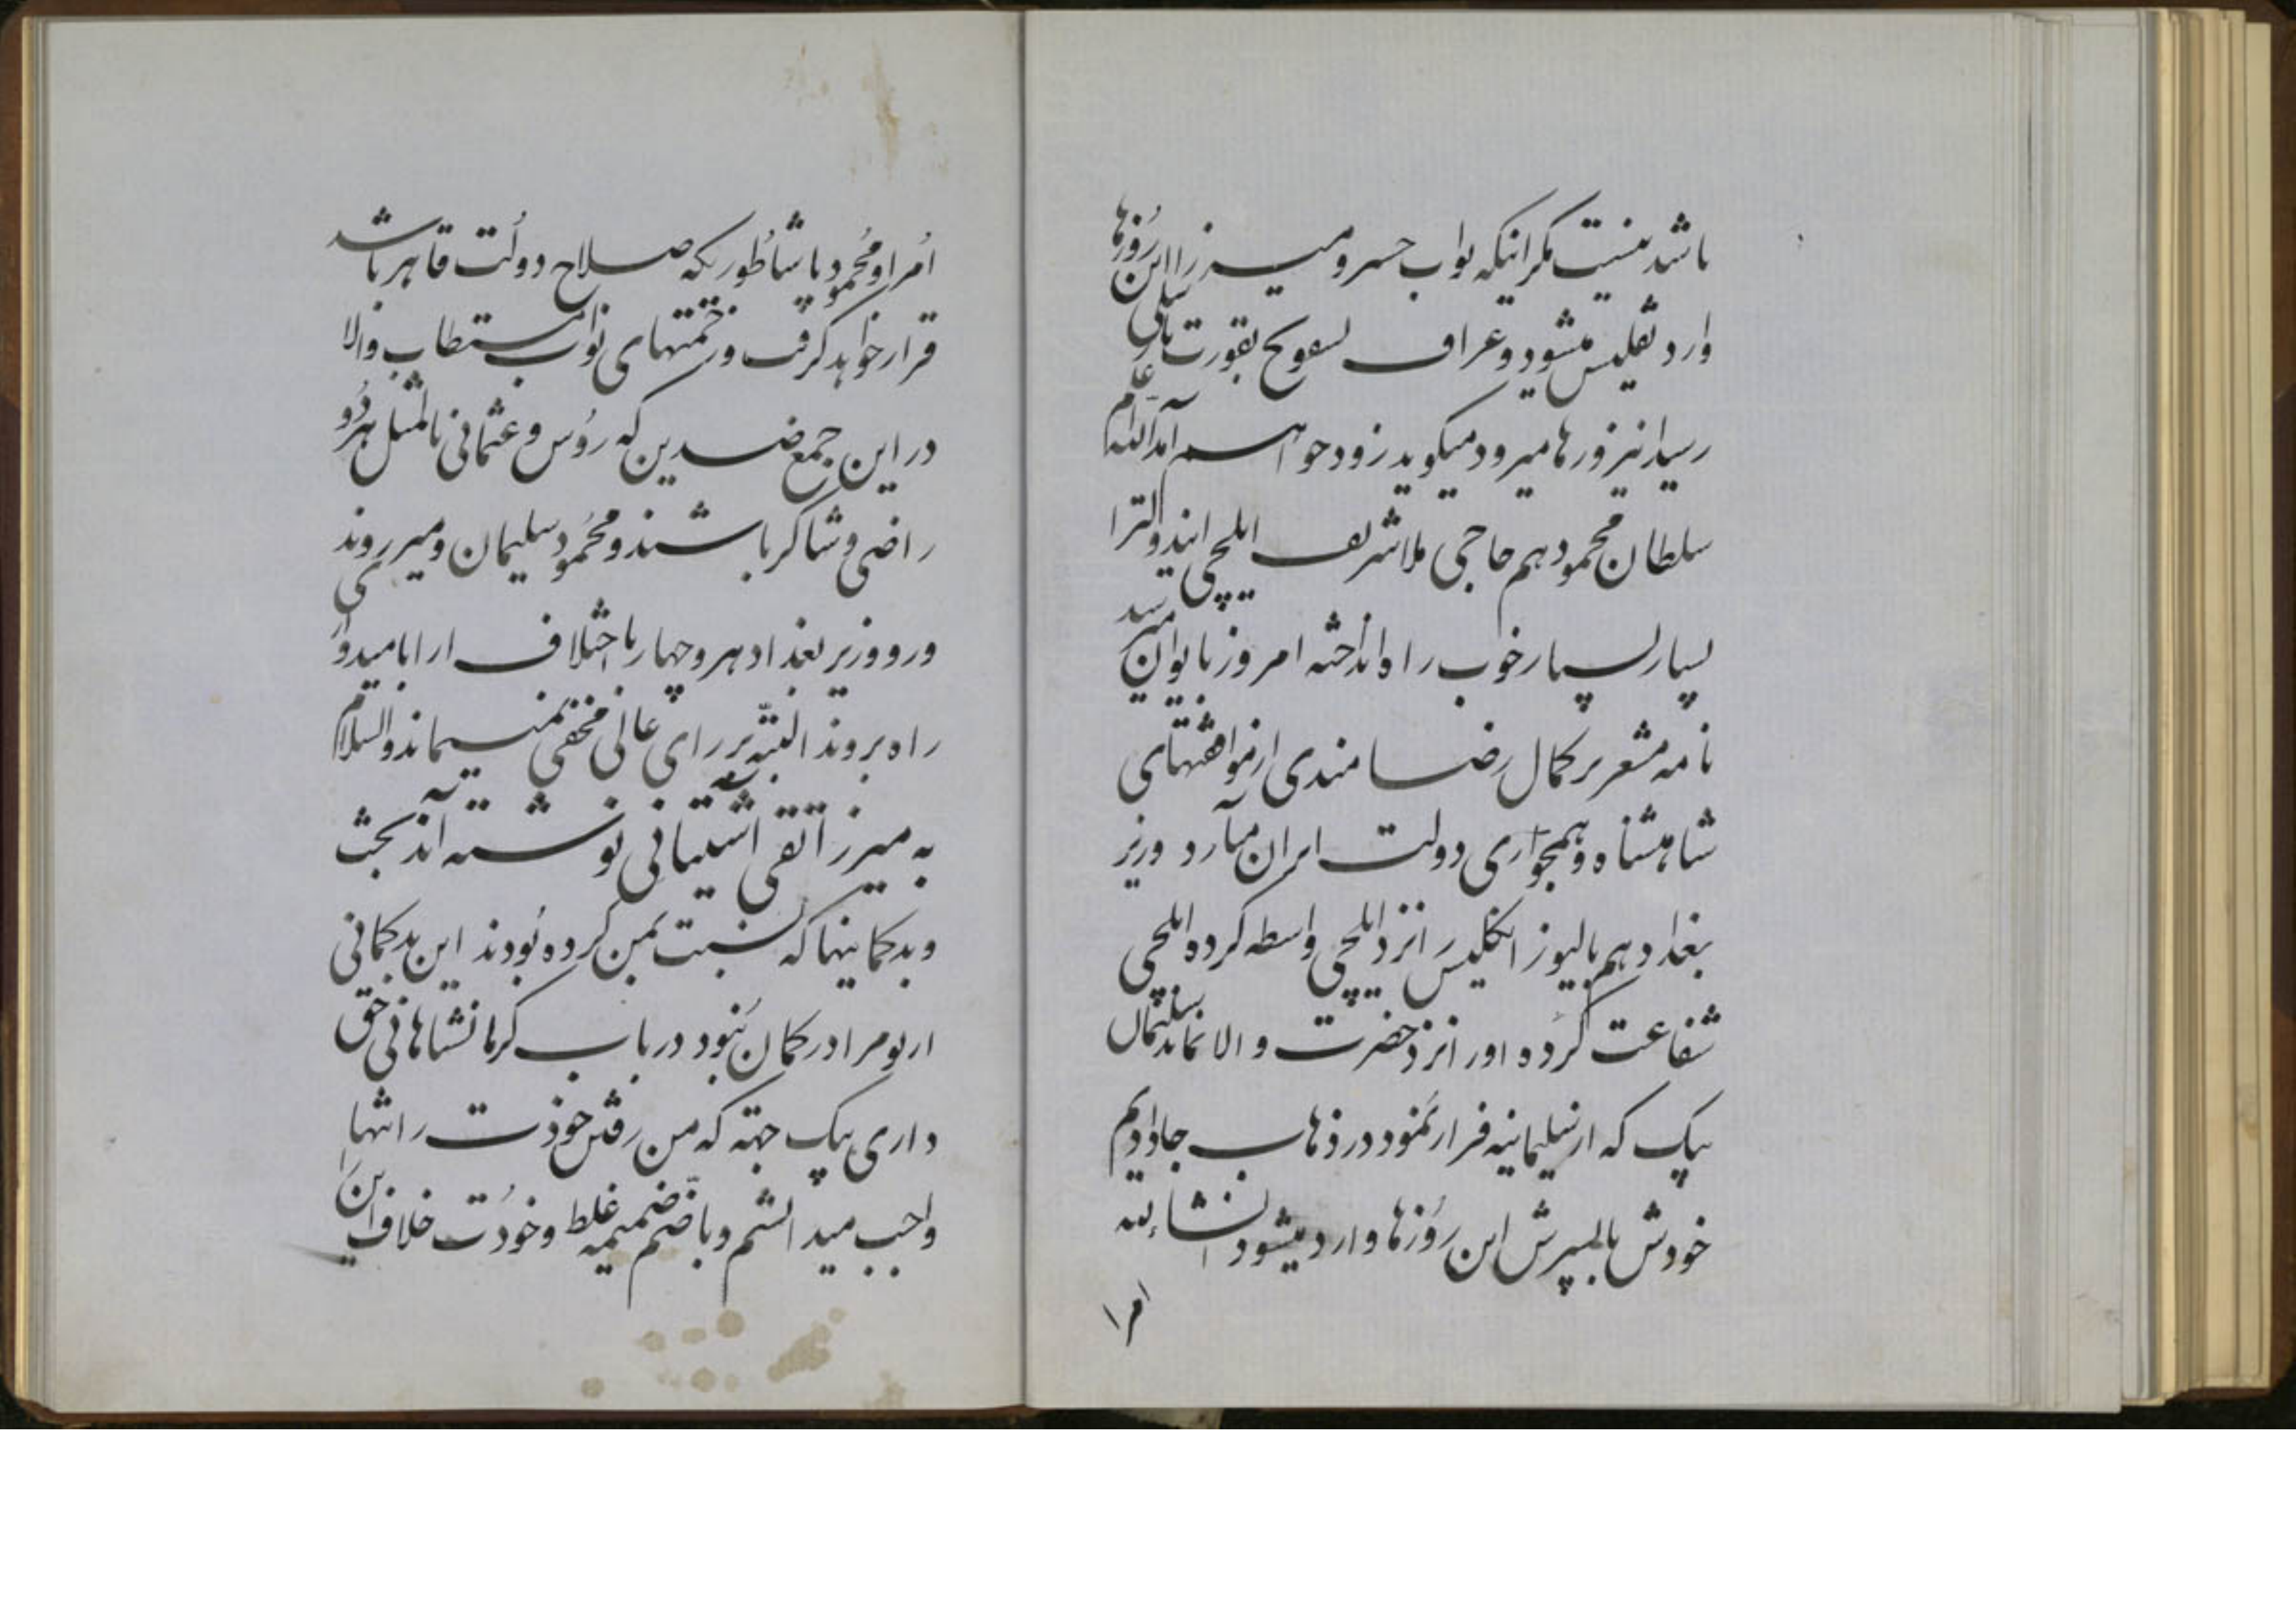 باشد نیست مگر اینکه نواب خسرو میرزا این روزها
وارد تفلیس میشود و غراف
رسید نیز ورها میرود میگوید زود خواهم آمد الله اعلم
سلطان محمود هم حاجی ملا شریف ایلچی
بسیار بسیار خوب راه انداخته امروز بایوان میرسد
نامه مشعر بر کمال رضامندی از موافقتهای
شاهنشاه و همجواری دولت ایران میآرد وزیر
بغداد هم بالیوز انگلیس را نزد ایلچی واسطه کرده ایلچی
شفاعت کرده او را نزد حضرت والا سلیمان
بیک که از سلیمانیه فرار نمود در ذهاب جا دادیم
خودش با پسرش این روزها وارد میشود انشاءالله
امرا
امر او و محمود پاشا طوریکه صلاح دولت قاهر باشد
قرار خواهد گرفت و زحمتهای نواب مستطاب والا
در این جمع ضدین که روس و عثمانی بالمثل هر دو
راضی و شاکر باشند و محمود و سلیمان و میر روندی
ورو وزیر بغداد هر چهار با اختلاف ارا بامیدوار
راه بروند البته بر رای عالی مخفی نمیماند والسلام
به میرزا تقی آشتیانی نوشته آند بحث
و بدگمانیها که نسبت بمن کرده بودند این بدگمانی
از تو مرا در گمان نبود در باب کرمانشاهان حق
داری بیک جهته که من رفتن خودت را تنها
واجب میدانستم و با ضم ضمیمه غلط و خودت خلاف این را